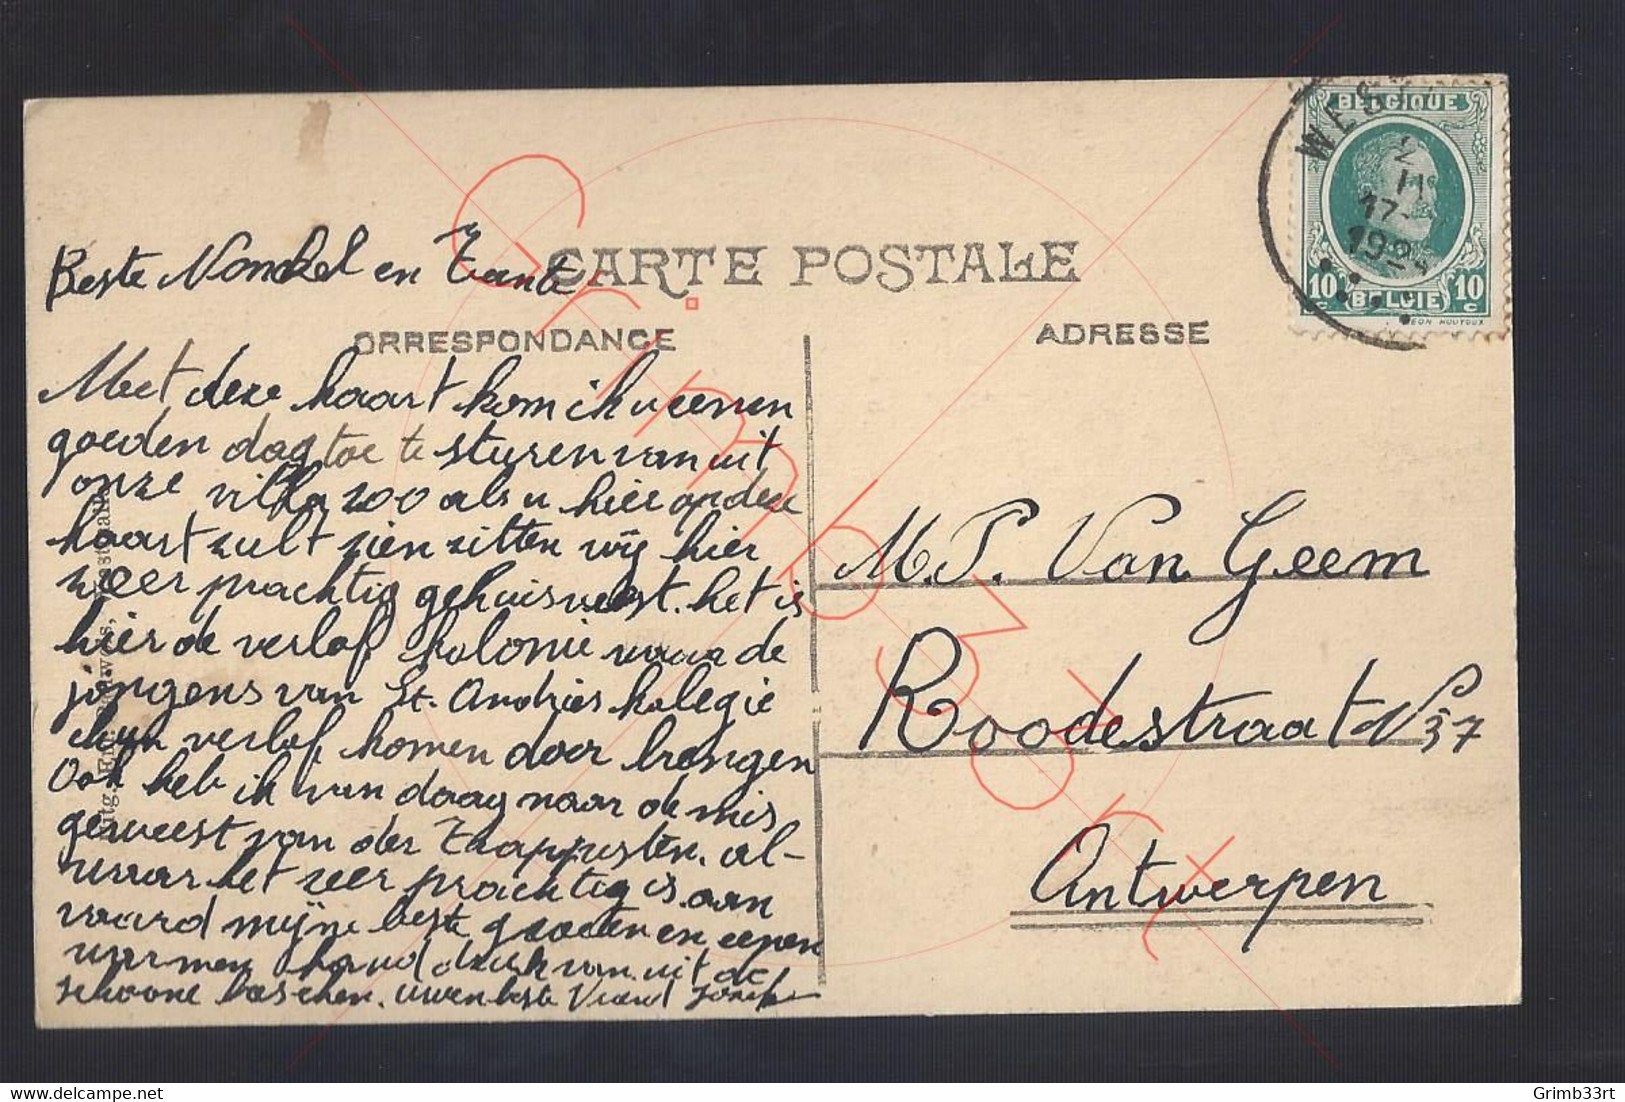 CARTE POSTALE
ORRESPONDANCE
ADRESSE
BELGIQUE
WEST
2
17-
192
10 10
c c
BELGIE
Beste Nonkel en Tante
Met deze kaart kom ik u eenen
goeden dag toe te sturen van uit
onze villa zoo als u hier op deze
kaart zult zien zitten wij hier
zeer prachtig gehuisvest. het is
hier de verlof kolonie waar de
jongens van St. Andries kolegie
hun verlof komen door brengen
Ook heb ik van daag naar de mis
geweest van der Trappisten. al-
waar het zeer prachtig is. aan
vaard mijne beste groeten en eenen
warmen hand druk van uit de
schoone bosschen. uwen beste Vriend
M. P. Van Geem
Roodestraat N 37
Antwerpen
Grimb33rt
delcampe.net
Grimb33rt